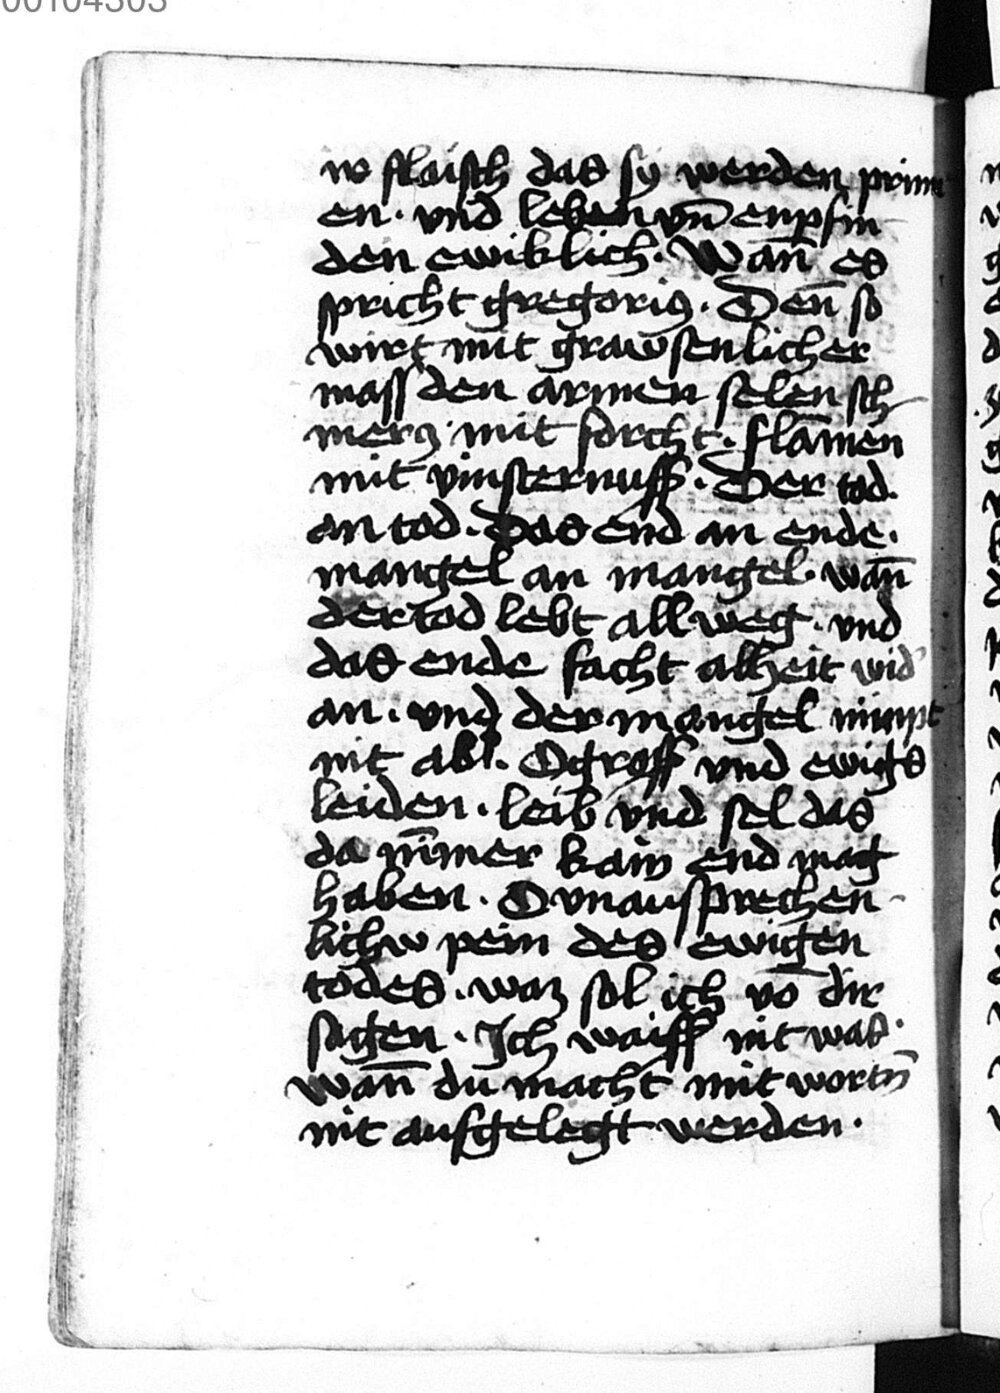 00104303
ir flaisch das sy werden prinn
en · vnd leben vn̄ enpfin
den ewiklich · Wan̄ es
spricht gregoriꝰ · Den̄ so
wirt mit grawsenlicher
mass den armen selen sch
mercz mit forcht · flāmen
mit vinsternuss · Der tod ·
an tod · Das end an ende ·
mangel an mangel · wan̄
der tod lebt allweg · vnd
das ende facht alheit wid
an · vnd der mangel nimpt
nit ab · O gross vnd ewigs
leiden · leib vnd sel das
da nīmer kain end mag
haben · O vnaussprechen
lichw pein des ewigen
todes · waz sol ich vō dir
sagen · Ich waiss nit was ·
wan̄ du macht mit wortn̄
nit ausgelegt werden ·